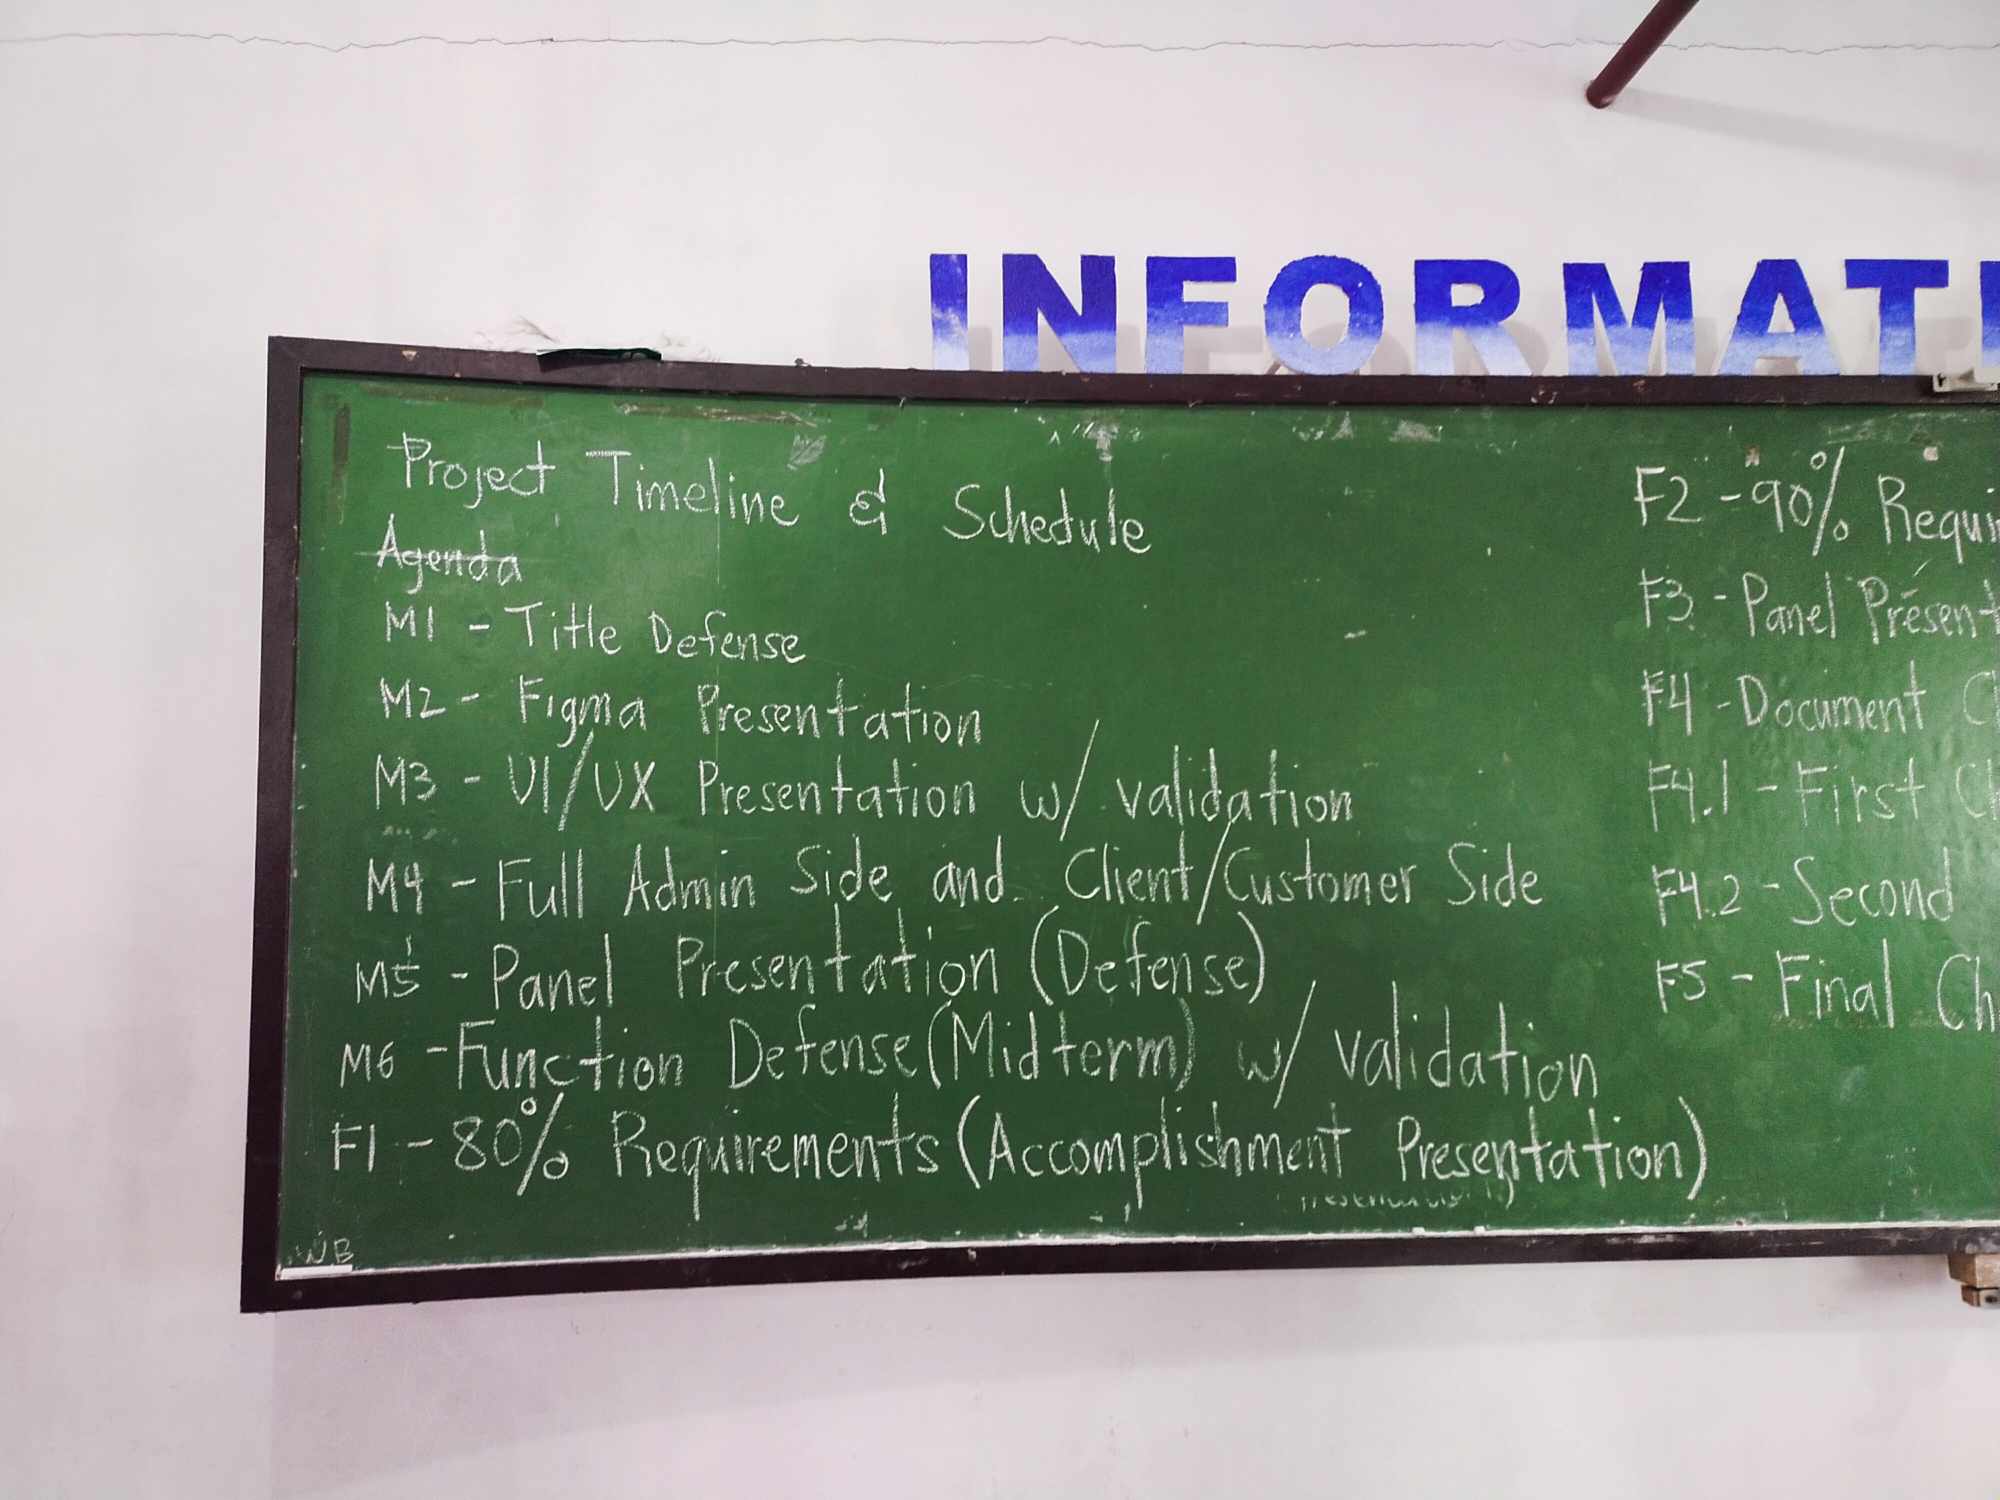 INFORMATI
Project Timeline & Schedule
Agenda
M1 - Title Defense
M2 - Figma Presentation
M3 - UI/UX Presentation w/ validation
M4 - Full Admin Side and Client/Customer Side
M5 - Panel Presentation (Defense)
M6 - Function Defense (Midterm) w/ validation
F1 - 80% Requirements (Accomplishment Presentation)
WB
F2 - 90% Requi
F3 - Panel Present
F4 - Document C
F4.1 - First Ch
F4.2 - Second
F5 - Final Ch